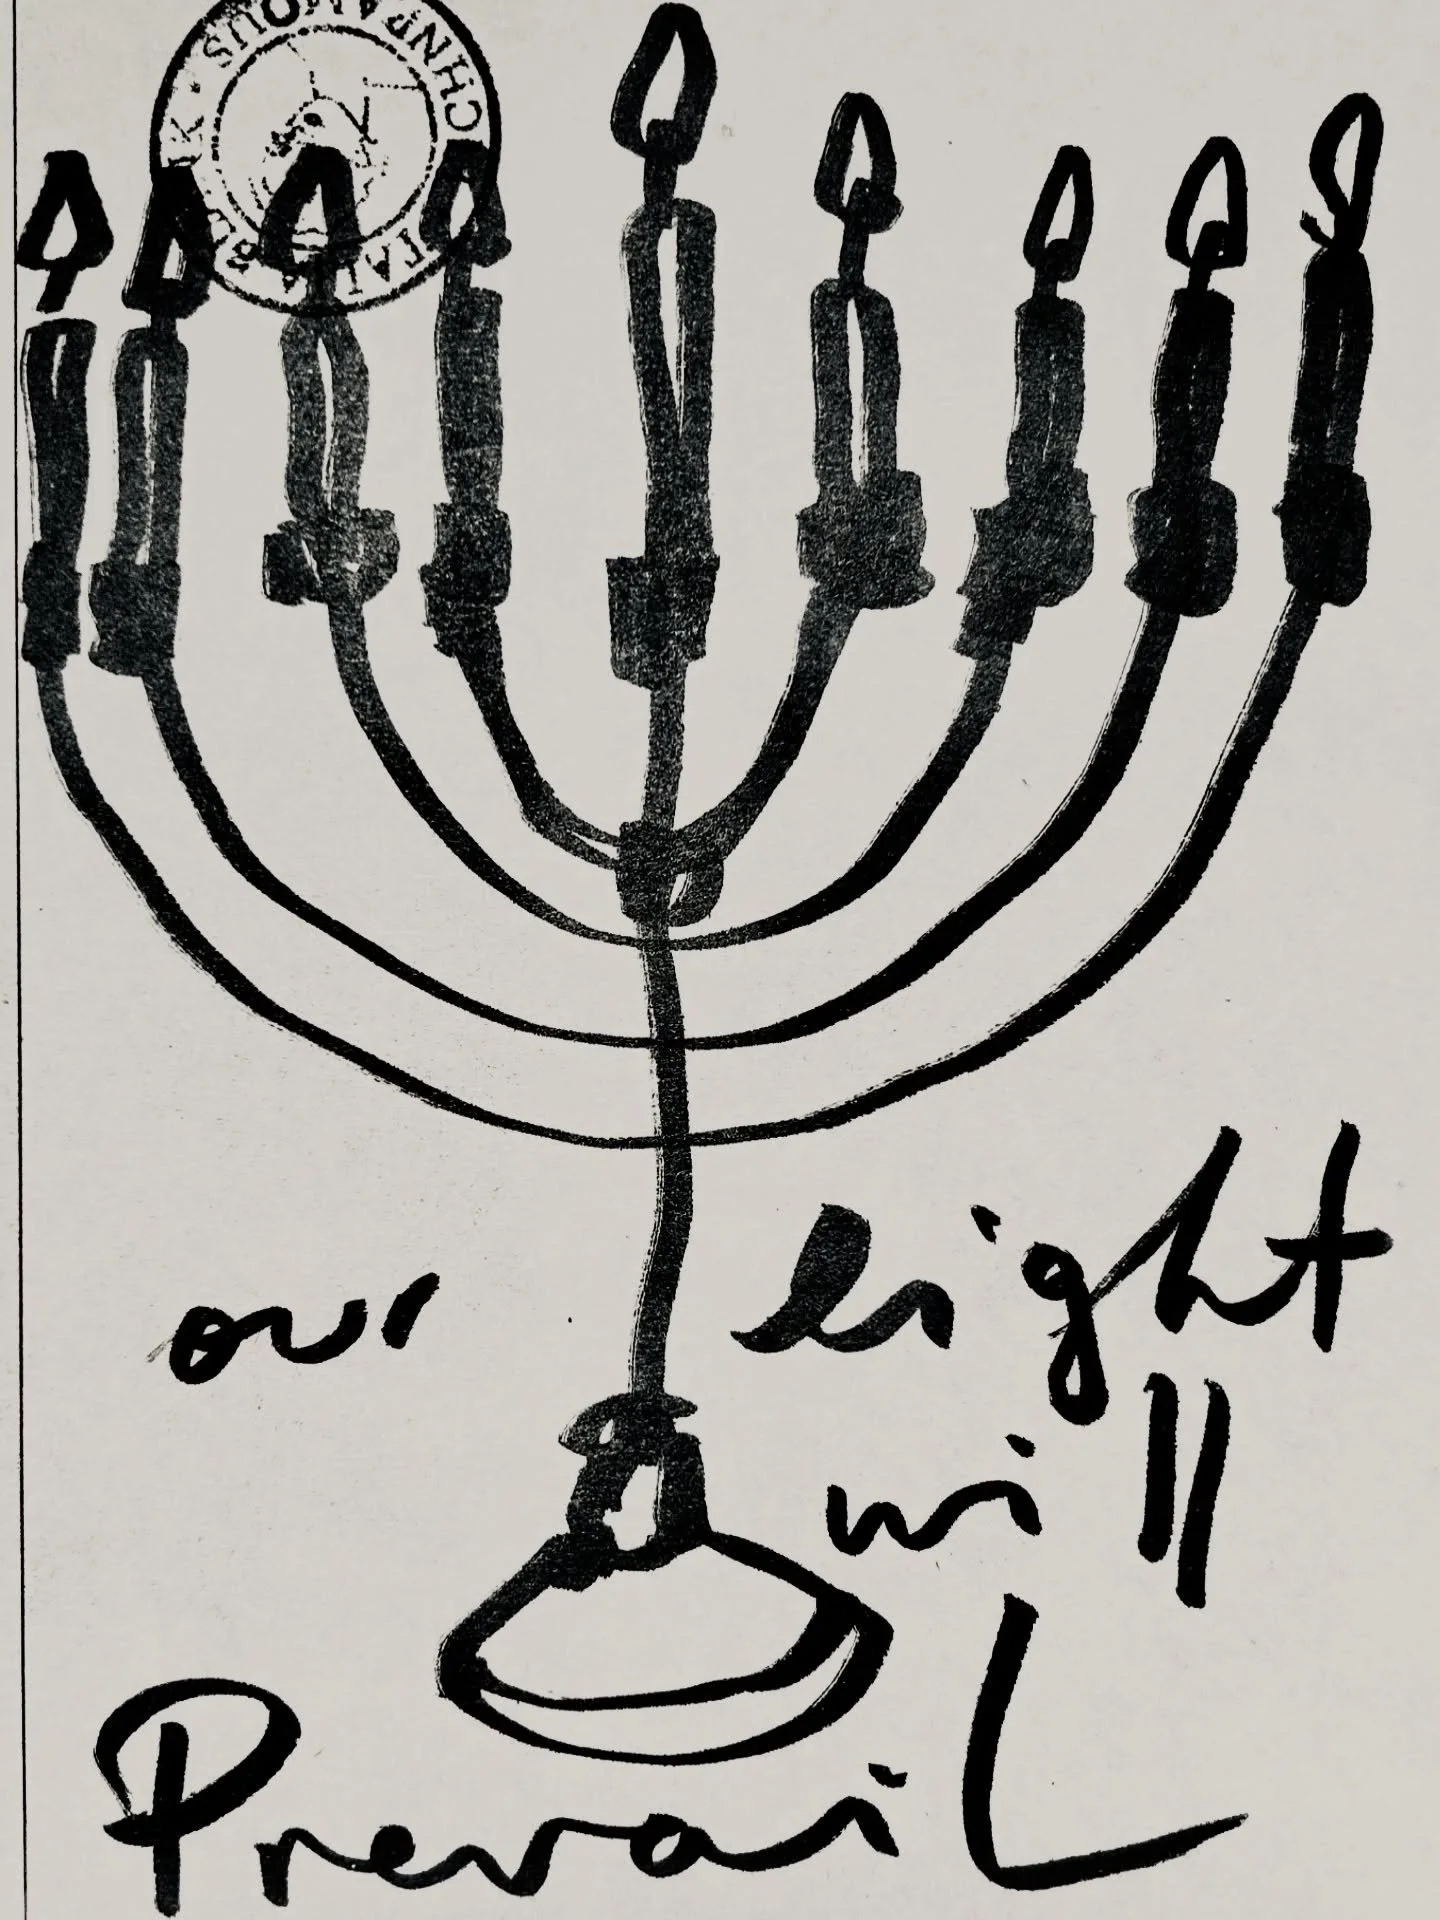 our light
will
Prevail